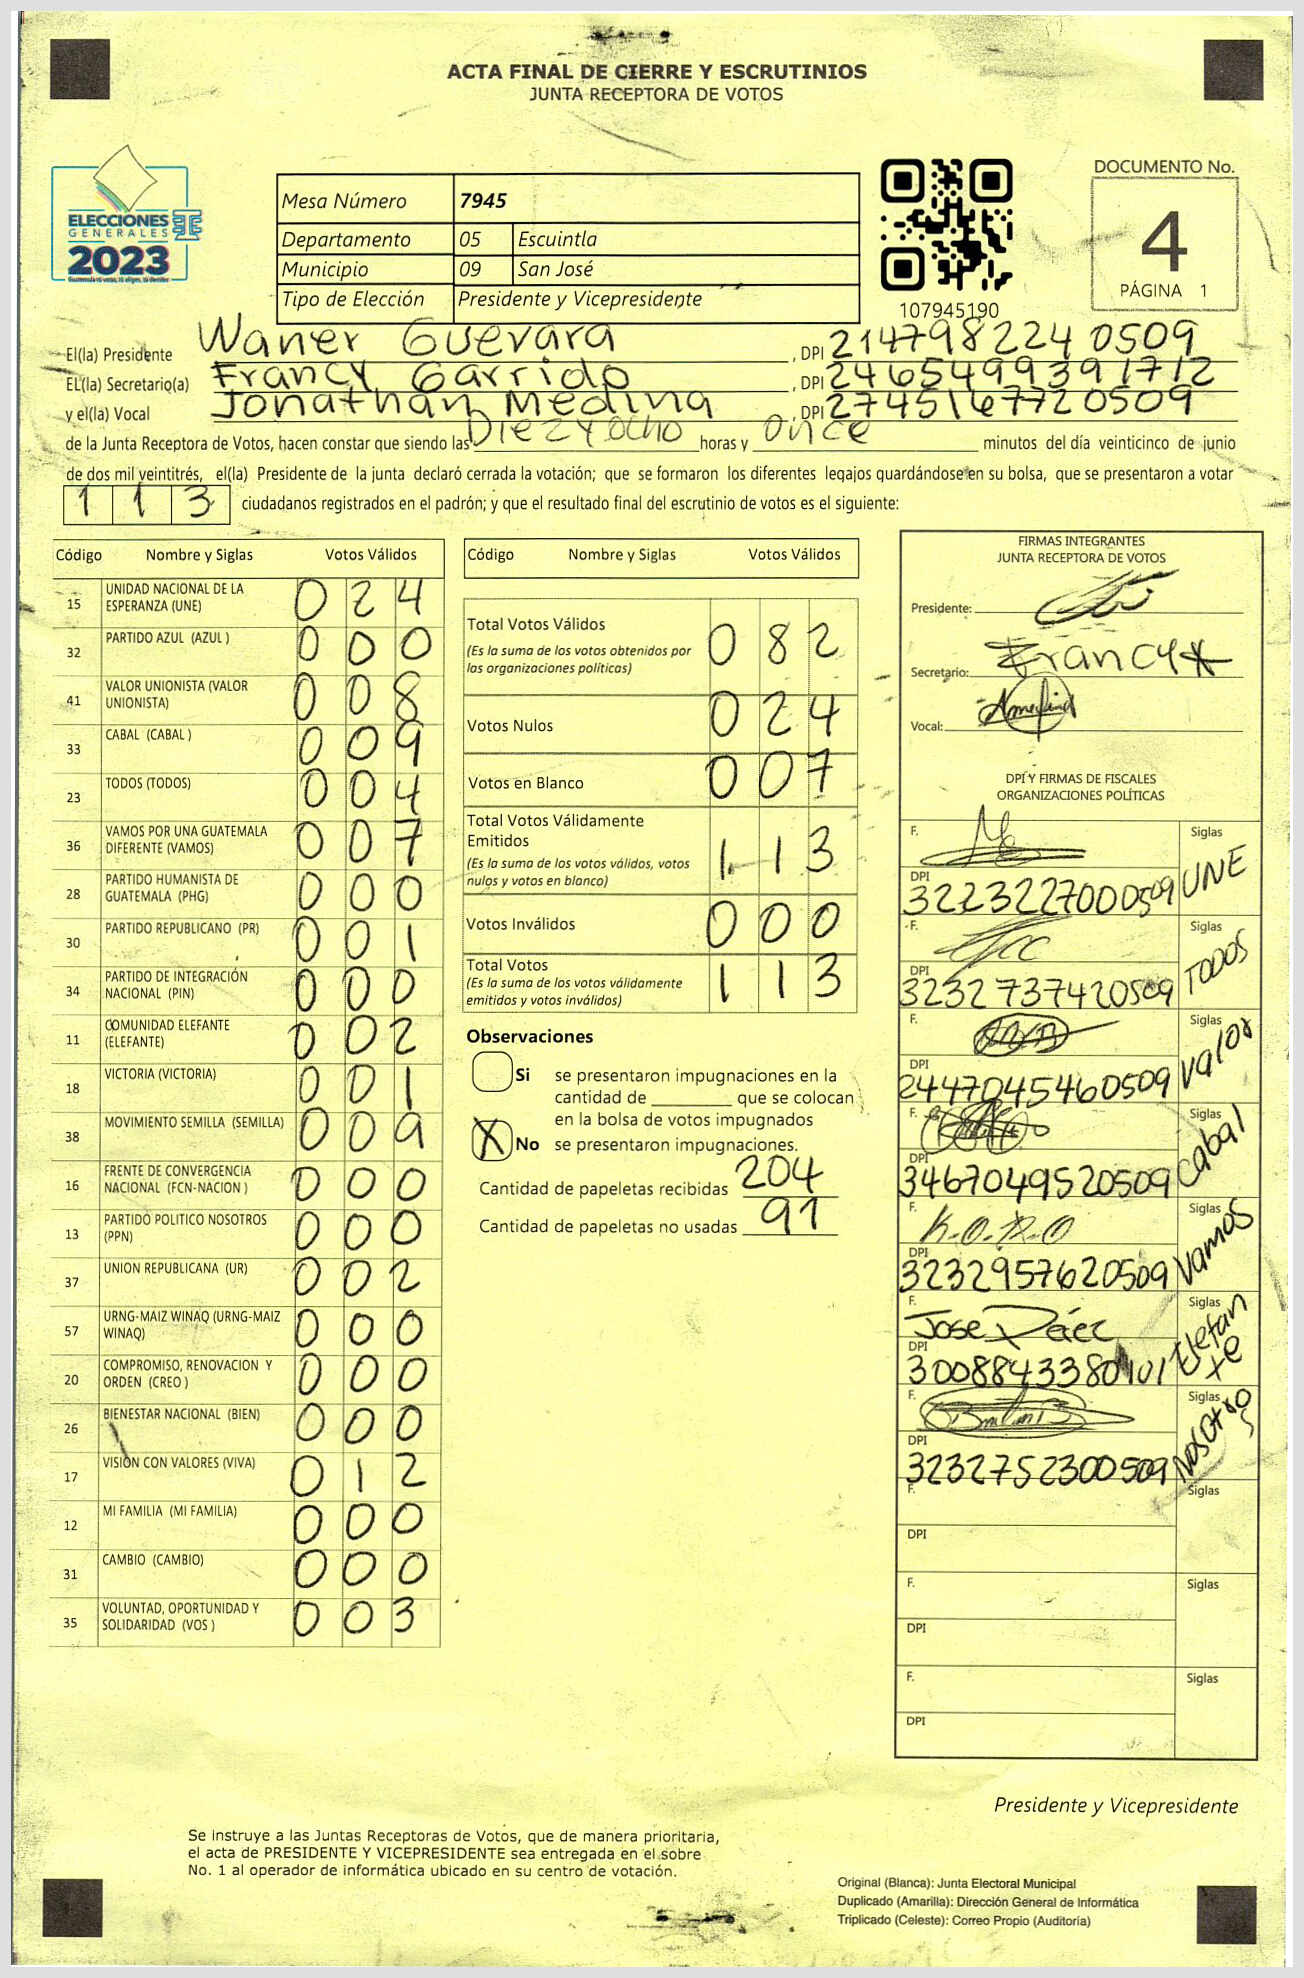 ACTA FINAL DE CIERRE Y ESCRUTINIOS
JUNTA RECEPTORA DE VOTOS
ELECCIONES
GENERALES
2023
Mesa Número 7945
Departamento 05 Escuintla
Municipio 09 San José
Tipo de Elección Presidente y Vicepresidente
107945190
DOCUMENTO No.
4
PÁGINA 1
El(la) Presidente Waner Guevara , DPI 214798224 0509
EL(la) Secretario(a) Francy Garrido , DPI 2465499391712
y el(la) Vocal Jonathan Medina , DPI 2745167720509
de la Junta Receptora de Votos, hacen constar que siendo las Diez y ocho horas y once minutos del día veinticinco de junio
de dos mil veintitrés, el(la) Presidente de la junta declaró cerrada la votación; que se formaron los diferentes legajos guardándose en su bolsa, que se presentaron a votar
113 ciudadanos registrados en el padrón; y que el resultado final del escrutinio de votos es el siguiente:
Código Nombre y Siglas Votos Válidos
15 UNIDAD NACIONAL DE LA ESPERANZA (UNE) 024
32 PARTIDO AZUL (AZUL ) 000
41 VALOR UNIONISTA (VALOR UNIONISTA) 008
33 CABAL (CABAL ) 009
23 TODOS (TODOS) 004
36 VAMOS POR UNA GUATEMALA DIFERENTE (VAMOS) 007
28 PARTIDO HUMANISTA DE GUATEMALA (PHG) 000
30 PARTIDO REPUBLICANO (PR) 001
34 PARTIDO DE INTEGRACIÓN NACIONAL (PIN) 000
11 COMUNIDAD ELEFANTE (ELEFANTE) 002
18 VICTORIA (VICTORIA) 001
38 MOVIMIENTO SEMILLA (SEMILLA) 009
16 FRENTE DE CONVERGENCIA NACIONAL (FCN-NACION ) 000
13 PARTIDO POLITICO NOSOTROS (PPN) 000
37 UNION REPUBLICANA (UR) 002
57 URNG-MAIZ WINAQ (URNG-MAIZ WINAQ) 000
20 COMPROMISO, RENOVACION Y ORDEN (CREO ) 000
26 BIENESTAR NACIONAL (BIEN) 000
17 VISION CON VALORES (VIVA) 012
12 MI FAMILIA (MI FAMILIA) 000
31 CAMBIO (CAMBIO) 000
35 VOLUNTAD, OPORTUNIDAD Y SOLIDARIDAD (VOS ) 003
Código Nombre y Siglas Votos Válidos
Total Votos Válidos 082
(Es la suma de los votos obtenidos por
las organizaciones políticas)
Votos Nulos 024
Votos en Blanco 007
Total Votos Válidamente
Emitidos 113
(Es la suma de los votos válidos, votos
nulos y votos en blanco)
Votos Inválidos 000
Total Votos 113
(Es la suma de los votos válidamente
emitidos y votos inválidos)
Observaciones
Si se presentaron impugnaciones en la
cantidad de ________ que se colocan
en la bolsa de votos impugnados
X No se presentaron impugnaciones.
Cantidad de papeletas recibidas 204
Cantidad de papeletas no usadas 91
FIRMAS INTEGRANTES
JUNTA RECEPTORA DE VOTOS
Presidente:
Secretario: Francy
Vocal:
DPI Y FIRMAS DE FISCALES
ORGANIZACIONES POLÍTICAS
F. Siglas UNE
DPI 3223227000509
F. Siglas TODOS
DPI 3232737420509
F. Siglas Valor
DPI 2447045460509
F. Siglas Cabal
DPI 3467049520509
F. K.O.R.O Siglas Vamos
DPI 3232957620509
F. Jose Páez Siglas Elefante
DPI 3008843380101
F. Siglas Nosotros
DPI 3232752300509
F. Siglas
DPI
F. Siglas
DPI
F. Siglas
DPI
Presidente y Vicepresidente
Se instruye a las Juntas Receptoras de Votos, que de manera prioritaria,
el acta de PRESIDENTE Y VICEPRESIDENTE sea entregada en el sobre
No. 1 al operador de informática ubicado en su centro de votación.
Original (Blanca): Junta Electoral Municipal
Duplicado (Amarilla): Dirección General de Informática
Triplicado (Celeste): Correo Propio (Auditoría)